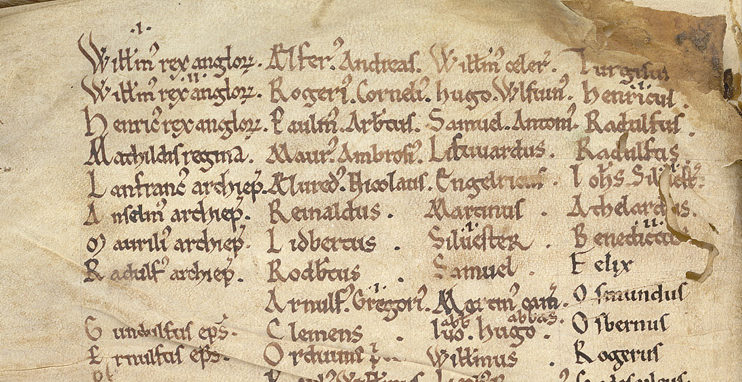 .I.
Willm' rex anglorꝝ. Alfer'. Andreas. Willm' celer'. Turgisus
.II.
Willm' rex anglorꝝ. Rogeri'. Corneli'. hugo. Wlfuin'. henricus.
henric' rex anglorꝝ. Paulin'. Arbtus. Samuel. Antoni'. Radulfus.
Mathildis regina. Maur'. Ambrosi'. Lifwardus. Radulfus
Lanfranc' archiep'. Alured'. Nicolaus. Engelricus. Iohs. Siluest'.
Anselm' archiep'. Reinaldus. Martinus. Athelardus.
Maurili' archiep'. Lidbertus. Siluester. Benedictus
Radulf' archiep'. Rodbtus. Samuel. Felix
Arnulf'. Gregori'. Osmundus
Gundulfus eps'. Clemens. Iuo abb. hugo abbas. Osbernus
Ernulfus eps'. Orduuinus Willmus Rogerus